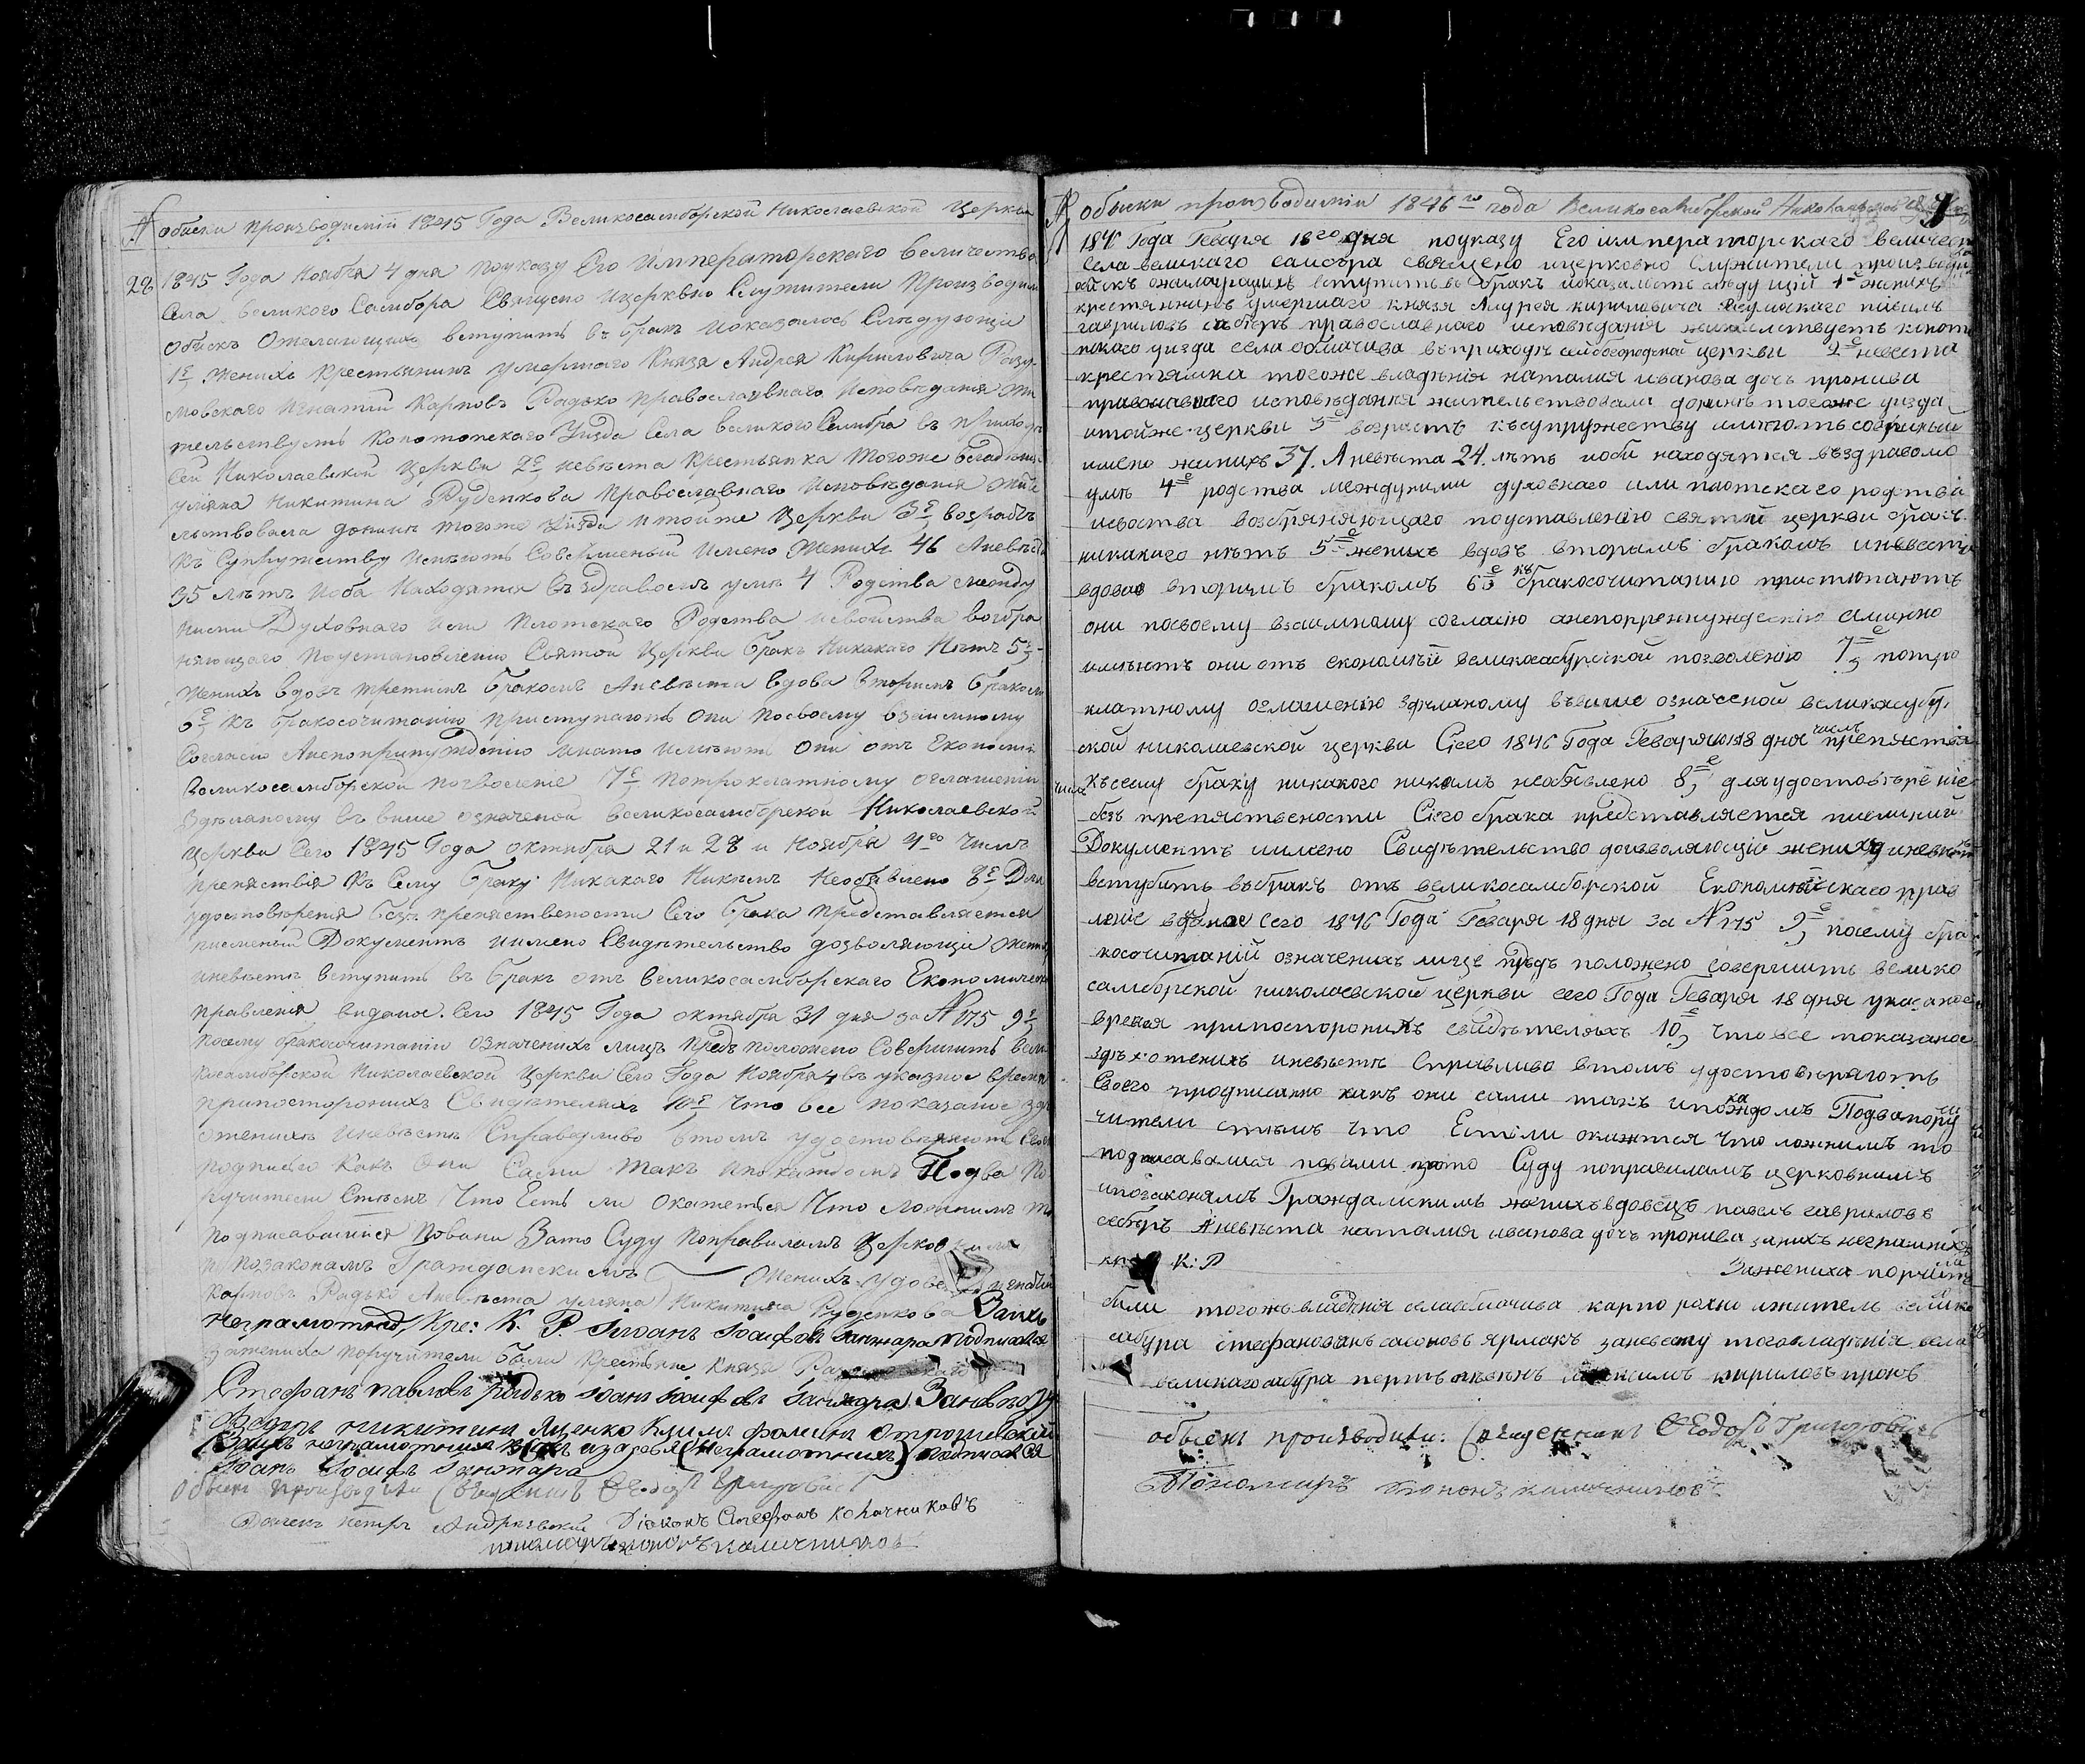 № обиски производимій 1845 Года Великосамборской Николаевской Церкви
28 1845 Года Ноября 4 дня поуказу Его Императорского Величества
Села великого Самбора Священо ицерквно Служители Производили
обискъ Ожелающихъ вступить въ бракъ ιоказалось Слѣдующіе
1е Женихъ Крестьянинъ умершаго Князя Андрея Кириловича Разу-
мовскаго Игнатій Карповъ Радько православнаго Исповѣданія жи
тельствуетъ Конотопскаго Уизда Села великого Самбра въ приходѣ
Сей Николаевской Церкви 2е невѣста Крестьянка Тогоже владѣнія
уліяна Никитина Руденкова православнаго Исповѣданія жите
льствовала донинѣ тогоже Уизда итойже Церкви 3е возрастъ
къ Супружеству Имѣютъ Совѣршеный Имено Женихъ 46 Аневѣста
35 лѣтъ Иоба Находятся въ здравомъ умѣ 4 Родства между
ними Духовнаго или Плотскаго Родства исвойства возбра
няющаго поустановленію Святой Церкви бракъ Никакаго Нѣтъ 5е
Женихъ вдовъ третимъ бракомъ Аневѣста вдова вторимъ бракомъ
6е къ бракосочитанію приступаютъ Они посвоему взаимному
Согласію Анепопринужденію имѣютъ Они отъ Економіи
Великосамборской позволеніе 7е потрократному оглашенію
Здѣланому въ више означеной великосамборской Николаевской
Церкви Сего 1845 Года октября 21 и 28 и Ноября 4го Числъ
препятствія къ Сему браку Никакаго Никѣмъ Необявлено 8е Для
удостовѣренія безъ препятствености Сего брака представляется
писменый Документъ иимено Свидѣтельство дозволяющіе жениху
иневѣстѣ вступить въ бракъ отъ великосамборскаго Економическаго
правленія виданое Сего 1845 Года октября 31 дня за № 175 9е
посему бракосочитаніи означенихъ лицъ предположено Совершить Вели
косамборской Николаевской Церкви Сего Года Ноября 4 въ указное время
припосторонихъ Свидѣтеляхъ 10е Что все показаное здѣ
оженихѣ иневѣстѣ Справедливо втомъ удостовѣряютъ Своею
подписью какъ Они Сами такъ ипокаждомъ Подва По
ручители Стѣмъ Что Есть ли окажется Что ложнимъ то
подписавшійся Повини Зато Суду поправиламъ Церковнимъ
и позаконамъ Гражданскимъ Женихъ удовецъ Игнатій
Карповъ Радько Аневѣста уліяна Никитина Руденкова Занхъ
неграмотныхъ, Кре: К. Р. Іоанъ Іосифовъ Ганжара подписался
зажениха поручители были Крестьяне Князя
Стефанъ павловъ радько іоанъ іосифовъ Ганжара Заневѣсту
федоръ никитинъ Яценко Климъ фоминъ
Заихъ неграмотнихъ (неграмотнихъ) подписался
Іоанъ Іосифъ Ганжара
обыскъ производили Священникъ Феодосій Григоровичъ
Дьячекъ петръ Андріевскій Діяконъ Стефанъ Калачниковъ
пономарь кононъ калачниковъ
№ обыски производиміи 1846го года Великосамборской Николаевской 9
1 1846 Года Генваря 18го дня поуказу Его императорскаго величества
Села великаго самбѣра священо ицерковно Служители производили
обискъ ожилающихъ вступить въ бракъ иоказалось слѣдующій 1е женихъ
крестянинъ умершаго князя Андрея кириловича Разумовскаго павелъ
гавриловъ сѣберъ православнаго исповѣданія жительствуетъ коното
пскаго уизда села обмачива въприходѣ сейбогородской церкви 2е невѣста
крестянка тогоже владѣнія наталия иванова дочъ пронива
православнаго исповѣданія жительствовала донинѣ тогоже уизда
итойже церкви 3е возрастъ къ супружеству имѣютъ совѣршеный
имено женихъ 37. Аневѣста 24. лѣтъ иоби находятся въздравомъ
умѣ 4е родства междуними духовнаго или плотскаго родства
исвоства возбряняющаго поуставленію святій церкви бракъ
никакаго нѣтъ 5е женихъ вдовъ вторымъ бракомъ иневѣста
вдова вторимъ бракомъ 6е къ бракосочитанию приступаютъ
они посвоему взаимному согласію
имѣютъ они отъ економіи великосамбурской позволенію 7е потро
клатному оглашенію здѣланому въвише означеной великосамбур
ской николаевской церкви Сего 1846 Года Генваря 18 дня числъ препяствія
късему браку никакого никимъ необявлено 8е дляудостовѣреніе
безъ препяствености Сего брака представляется писминий
Документъ иимено Свидѣтельство дозволяющій жениху иневѣстѣ
вступить въбракъ отъ великосамборской Економическаго прав
леніе виданое сего 1846 Года Генваря 18 дня за № 175 9е посему бра
косочитаній означенихъ лицъ предъ положено совершить велико
самборской николаевской церкви сего Года Генваря 18 дня указаное
время припосторонихъ свидѣтеляхъ 10е Что все показаное
здѣ оженихѣ иневѣстѣ Спривливо втомъ удостовѣряютъ
Своего подписанно какъ они сами такъ ипокаждомъ Подвапору
чители стѣмъ что Естли окажется что ложнимъ то
подписавшися повини зато Суду поправиламъ церковнимъ
ипозаконямъ Гражданскимъ женихъ вдовецъ павелъ гавриловъ
себѣръ Аневѣста наталия иванова дочъ пронива занихъ неграмотнихъ
кр К: Р Зажениха поручитѣ
были тогожъ владѣнія селаобмачива карпо рохно ижитель велико
самбура стефановъ ярмакъ заневѣсту тоговладѣнія села
великагосамбура кириловъ пронь
обыскъ производили: Священникъ Феодосъ Григоровичъ
Пономаръ Кононъ калачниковъ